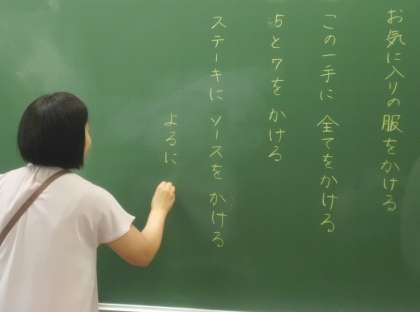 お気に入りの服をかける
この一手に 全てをかける
5と7を かける
ステーキに ソースを かける
よるに